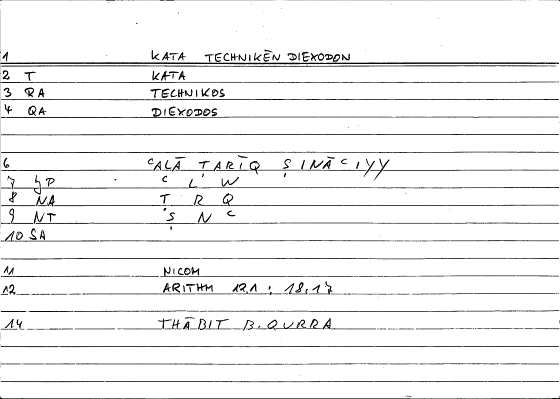 1 KATA TECHNIKĒN DIEXODON
2 T KATA
3 RA TECHNIKOS
4 QA DIEXODOS
6 ʿALĀ ṬARĪQ ṢINĀʿIYY
7 JP ʿ L W
8 NA Ṭ R Q
9 NT Ṣ N ʿ
10 SA
11 NICOM
12 ARITHM 121 : 18,17
14 THĀBIT B. QURRA